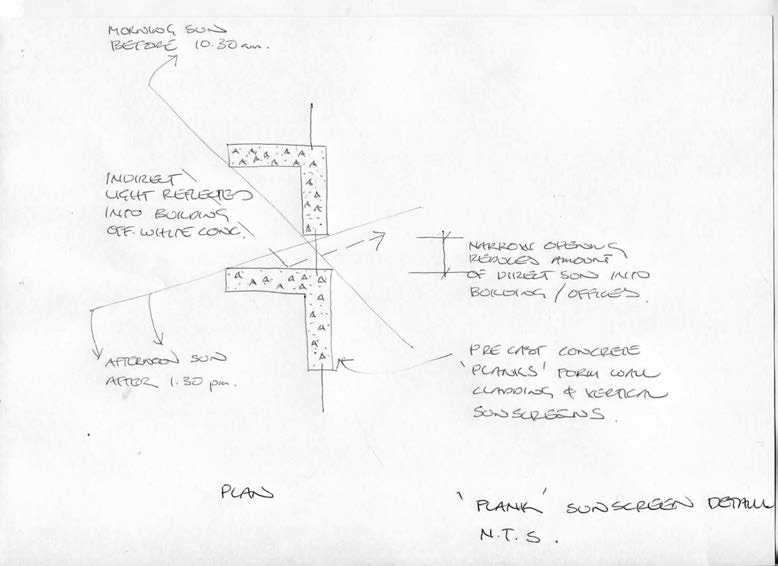 MORNING SUN
BEFORE 10.30 am.
INDIRECT
LIGHT REFLECTED
INTO BUILDING
OFF. WHITE CONC.
NARROW OPENING
REDUCES AMOUNT
OF DIRECT SUN INTO
BUILDING / OFFICES.
AFTERNOON SUN
AFTER 1.30 pm.
PRE CAST CONCRETE
'PLANKS' FORM WALL
CLADDING & VERTICAL
SUNSCREENS.
PLAN
'PLANK' SUNSCREEN DETAIL
N.T.S.